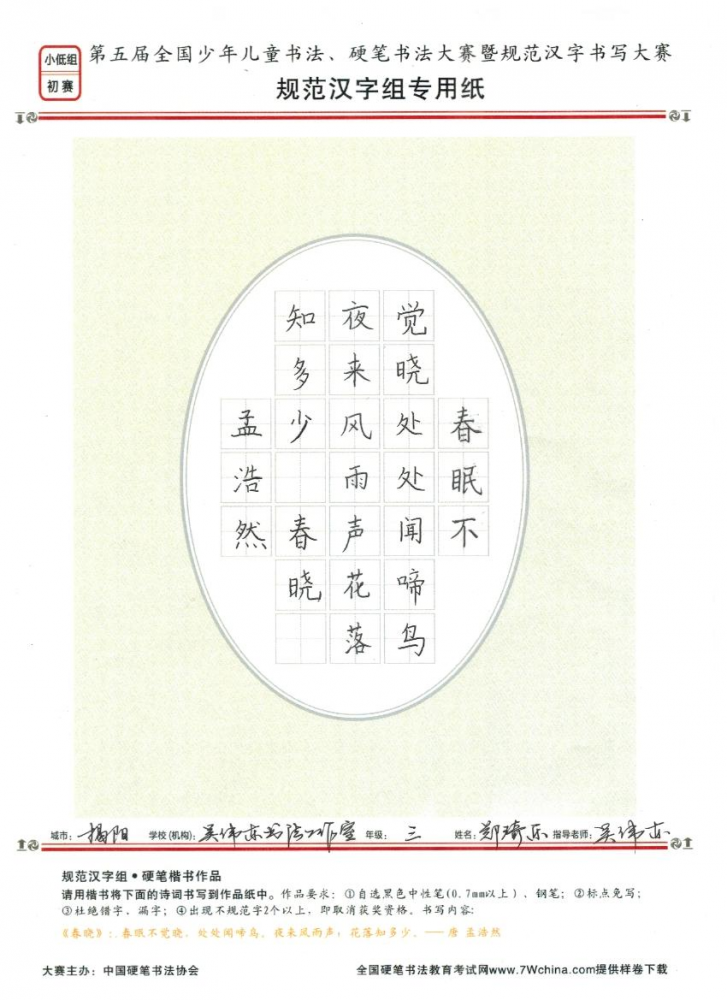 小低组
初赛
第五届全国少年儿童书法、硬笔书法大赛暨规范汉字书写大赛
规范汉字组专用纸
春眠不
觉晓处处闻啼鸟
夜来风雨声花落
知多少 春晓
孟浩然
城市：揭阳 学校(机构)：吴伟亦书法工作室 年级：三 姓名：郑琦乐 指导老师：吴伟亦
规范汉字组●硬笔楷书作品
请用楷书将下面的诗词书写到作品纸中。作品要求：①自选黑色中性笔(0.7mm以上)、钢笔；②标点免写；
③杜绝错字、漏字；④出现不规范字2个以上，即取消获奖资格。书写内容：
《春晓》：春眠不觉晓，处处闻啼鸟。夜来风雨声，花落知多少。——唐 孟浩然
大赛主办：中国硬笔书法协会 全国硬笔书法教育考试网www.7Wchina.com提供样卷下载